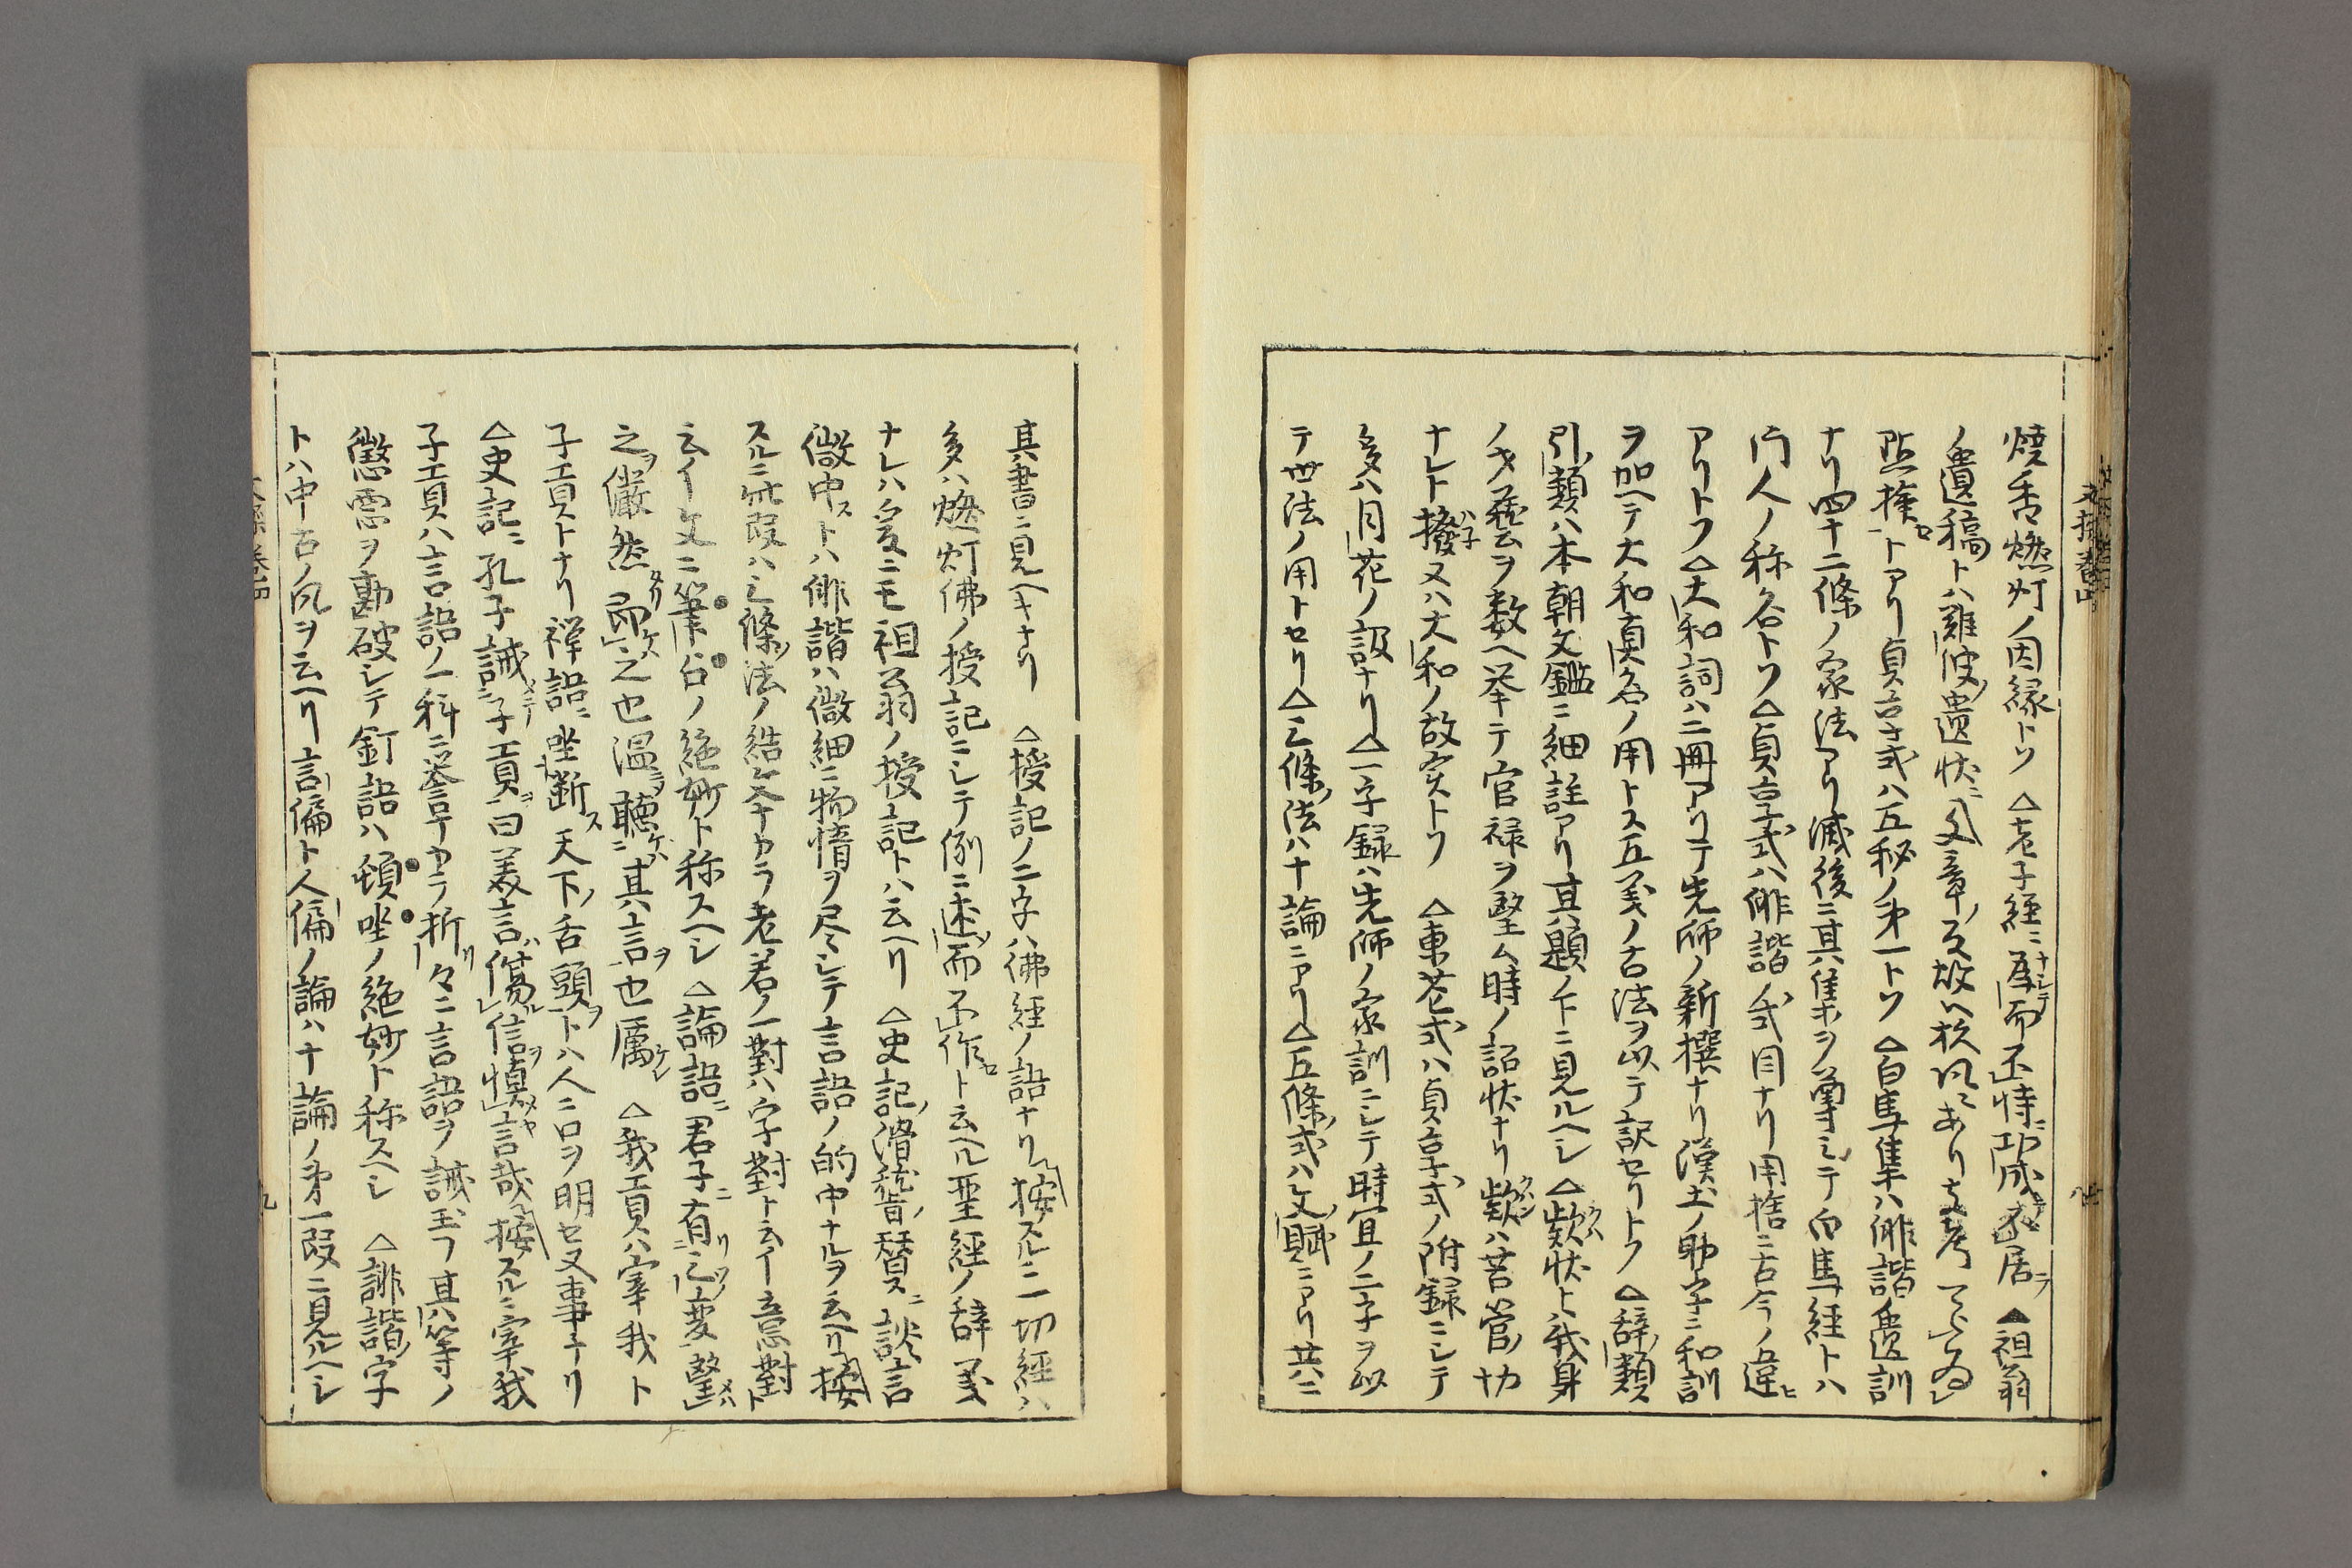 焼香燃灯ノ因縁トソ △老子経ニ為而不恃功成不居 △祖翁
ノ遺稿トハ難波ノ遺状ニ文章ノ
点捺トアリ貞享式ハ五秘ノ第一トソ △白馬集ハ俳諧ノ遺訓
ナリ四十二條ノ家法アリ滅後ニ其集ヲ尊ミテ白馬経トハ
門人ノ称名トソ △貞享式ハ俳諧ノ式目ナリ用捨ニ古今ノ違ヒ
アリトソ △大和詞ハ二冊アリテ先師ノ新撰ナリ漢土ノ助字ニ和訓
ヲ加ヘテ大和真名ノ用トス五義ノ古法ヲ以テ訳セリトソ △辞類
引類ハ本朝文鑑ニ細註アリ其題ノ下ニ見ルヘシ △欵状トハ我身
ノ才藝ヲ数ヘ挙テ官禄ヲ望ム時ノ詔状ナリ欵ハ苦管ノ切
ナレト撥子又ハ大和ノ故実トソ △東花式ハ貞享式ノ附録ニシテ
多ハ月花ノ設ナリ △一字録ハ先師ノ家訓ニシテ時宜ノ二字ヲ以
テ世法ノ用トセリ △三條ノ法ハ十論ニアリ △五條ノ式ハ文賦ニアリ共ニ
其書ニ見ヘキナリ △授記ノ二字ハ佛経ノ語ナリ按スルニ一切経ハ
多ハ燃灯佛ノ授記ニシテ例ニ述而不作ト云ヘル聖経ノ辞義
ナレハ爰ニモ祖翁ノ授記トハ云ヘリ △史記ノ滑稽ノ賛ニ談言
微中ストハ俳諧ハ微細ニ物情ヲ尽シテ言語ノ的中ナルヲ云ヘリ按
スルニ此段ハ三條ノ法ノ結〆ナカラ老君ノ一對ハ字對ト云イ意對ト
云イ文ニ筆占ノ絶妙ト称スヘシ △論語ニ君子ニ有三変望
之儼然即之也温聴其言也厲 △我貢ハ宰我ト
子貢トナリ禅語ニ坐断ス天下ノ舌頭ヲトハ人ニ口ヲ明セヌ事ナリ
△史記ニ孔子誡子貢曰美言傷信慎言哉按スルニ宰我
子貢ハ言語ノ一科ニ誉ナカラ折々ニ言語ヲ誡玉フ其等ノ
懲悪ヲ勘破シテ釘語ハ頓坐ノ絶妙ト称スヘシ △誹諧ノ字
トハ中古ノ風ヲ云ヘリ言偏ト人偏ノ論ハ十論ノ第一段ニ見ルヘシ